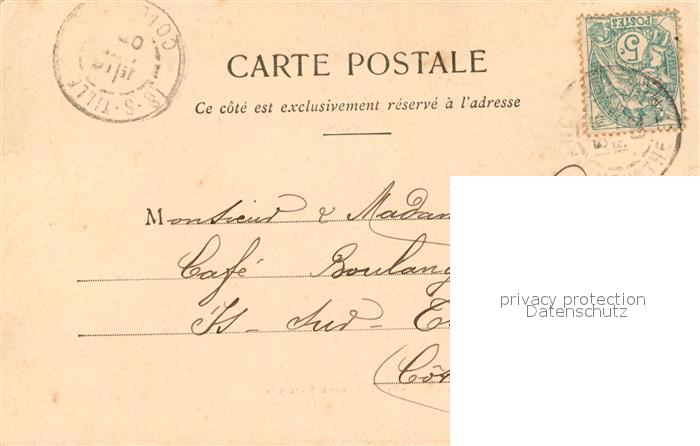 CARTE POSTALE
Ce côté est exclusivement réservé à l'adresse
POSTES
5
IS-S-TILLE
Monsieur & Madam
Café Boulang
Is-sud-
(Côt
privacy protection
Datenschutz